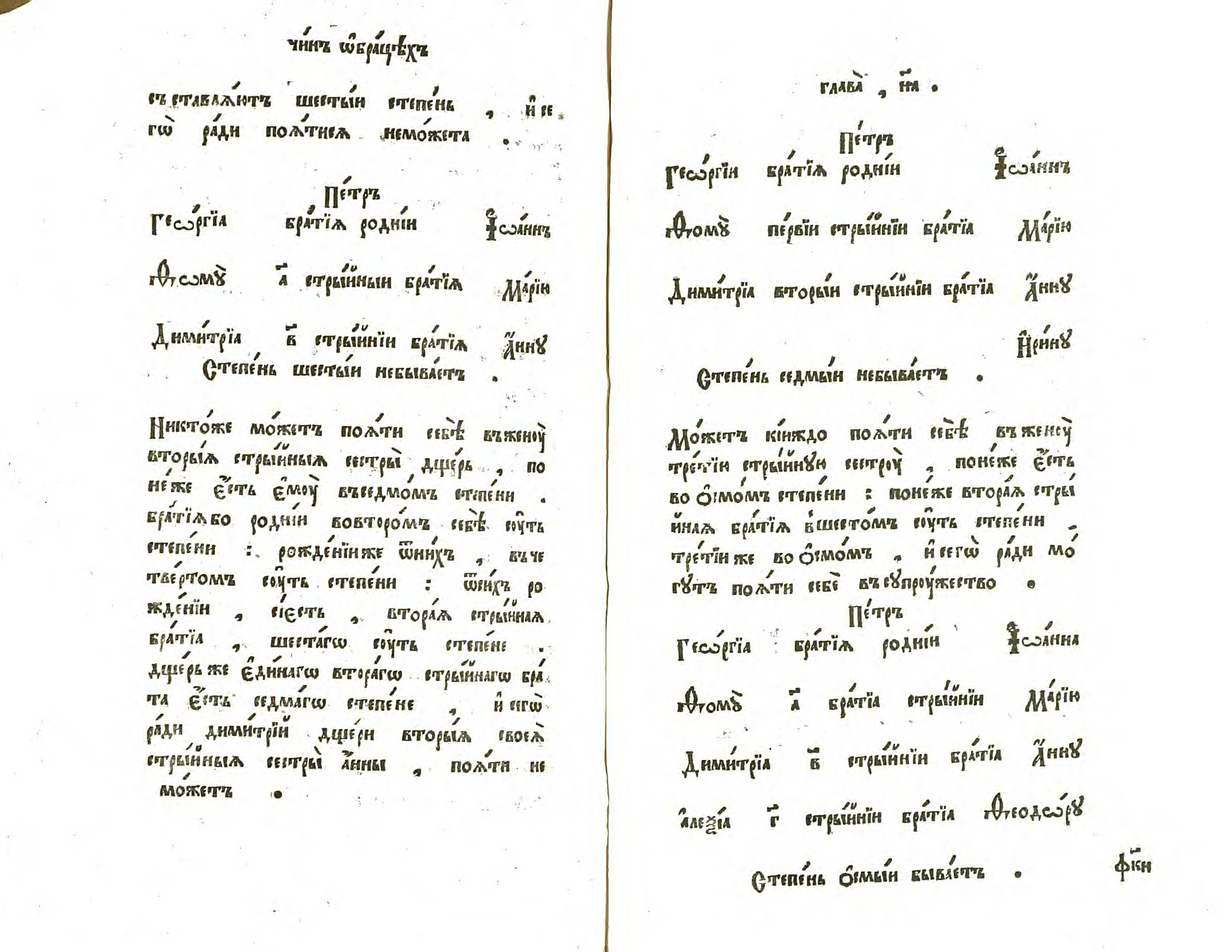 чи́нъ ѡ҆бра́цѣхъ
съставлѧ́ютъ шесты́и степе́нь , и҆ се
гѡ̀ ра́ди поѧ́тисѧ немо́жета .
Пе́тръ
Геѡ́ргїа бра́тїѧ родні́и І҆ѡа́ннъ
Ѳѡмꙋ̀ а҃ стры́йныи бра́тїѧ Марі́ю
Дими́трїа в҃ стры́йнїи бра́тїѧ А҆́ннꙋ
Степе́нь шесты́и небыва́етъ .
Никто́же мо́жетъ поѧ́ти себѣ̀ въженоу̀
вторы́ѧ стры́йныѧ сестры̀ дще́рь , по
не́же є҆́сть є҆моу̀ въседмо́мъ степе́ни .
бра́тїѧбо родні́и вовторо́мъ себѣ̀ соу́ть
степе́ни : рожде́нїиже ѿни́хъ , въче
тве́ртомъ соу́ть степе́ни : ѿси́хъ ро
жде́нїи , сіе́сть , втора́ѧ стры́йнаѧ
бра́тїа , шеста́гѡ соу́ть степе́не .
дще́рьже є҆ди́нагѡ втора́гѡ стры́йнагѡ бра́
та є҆́сть седма́гѡ степе́не , и҆ сегѡ̀
ра́ди дими́трїй дще́ри вторы́ѧ своеѧ̀
стры́йныѧ сестры̀ а҆́нны , поѧ́ти не
мо́жетъ .
глава̀ , н҃а .
Пе́тръ
Геѡ́ргїи бра́тїѧ родні́и І҆ѡа́ннъ
Ѳомꙋ̀ пе́рвїи стры́йнїи бра́тїа Марі́ю
Дими́трїа вторы́и стры́йнїи бра́тїа А҆́ннꙋ
И҆ри́нꙋ
Степе́нь седмы́и небыва́етъ .
Мо́жетъ кі́иждо поѧ́ти себѣ̀ въженоу̀
тре́тїи стры́йнꙋю сестроу̀ , поне́же є҆́сть
во ѻ҆смо́мъ степе́ни : поне́же втора́ѧ стры́
йнаѧ бра́тїа в̾шесто́мъ соу́ть степе́ни
тре́тїиже во ѻ҆смо́мъ , и҆ сегѡ̀ ра́ди мо́
гꙋтъ поѧ́ти себѐ въсупроу́жество .
Пе́тръ
Геѡ́ргїа бра́тїѧ родні́и І҆ѡа́нна
Ѳомꙋ̀ а҃ бра́тїа стры́йнїи Марі́ю
Дими́трїа в҃ стры́йнїи бра́тїа А҆́ннꙋ
а҆леѯі́а г҃ стры́йнїи бра́тїа Ѳеодѡ́рꙋ
Степе́нь ѻ҆смы́и быва́етъ .
ф҃ки